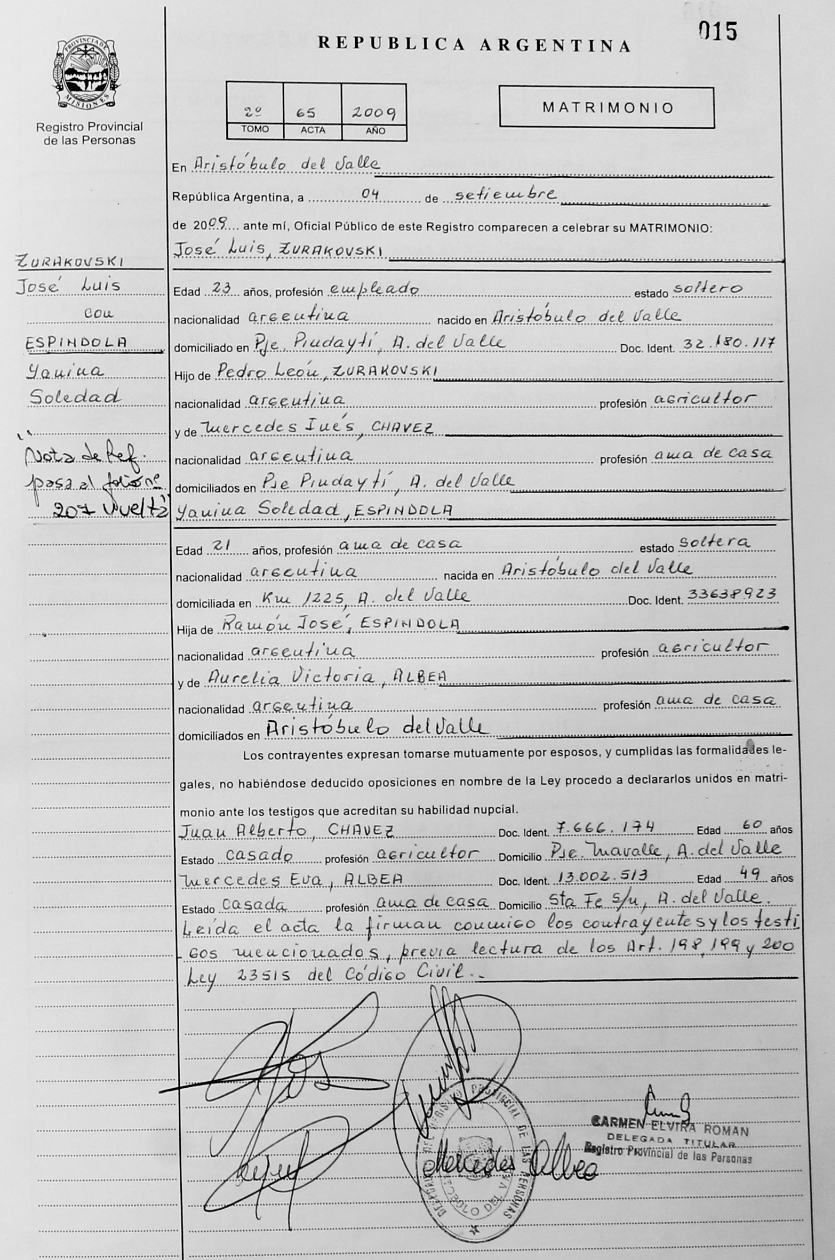 015
REPUBLICA ARGENTINA
PROVINCIA DE MISIONES
Registro Provincial
de las Personas
2º 65 2009
TOMO ACTA AÑO
MATRIMONIO
En Aristóbulo del Valle
República Argentina, a 04 de setiembre
de 2009 ante mí, Oficial Público de este Registro comparecen a celebrar su MATRIMONIO:
José Luis, ZURAKOVSKI
ZURAKOVSKI
José Luis
con
ESPINDOLA
Yanina
Soledad
Nota de Ref.
pasa al folio nº
207 vuelta
Edad 23 años, profesión empleado estado soltero
nacionalidad argentina nacido en Aristóbulo del Valle
domiciliado en Pje. Pindaytí, A. del Valle Doc. Ident. 32.180.117
Hijo de Pedro León, ZURAKOVSKI
nacionalidad argentina profesión agricultor
y de Mercedes Inés, CHAVEZ
nacionalidad argentina profesión ama de casa
domiciliados en Pje Pindaytí, A. del Valle
Yanina Soledad, ESPINDOLA
Edad 21 años, profesión ama de casa estado soltera
nacionalidad argentina nacida en Aristóbulo del Valle
domiciliada en Km 1225, A. del Valle Doc. Ident. 33638923
Hija de Ramón José, ESPINDOLA
nacionalidad argentina profesión agricultor
y de Aurelia Victoria, ALBEA
nacionalidad argentina profesión ama de casa
domiciliados en Aristóbulo del Valle
Los contrayentes expresan tomarse mutuamente por esposos, y cumplidas las formalidades le-
gales, no habiéndose deducido oposiciones en nombre de la Ley procedo a declararlos unidos en matri-
monio ante los testigos que acreditan su habilidad nupcial.
Juan Alberto, CHAVEZ Doc. Ident. 7.666.174 Edad 60 años
Estado casado profesión agricultor Domicilio Pje. Mavalle, A. del Valle
Mercedes Eva, ALBEA Doc. Ident. 13.002.513 Edad 49 años
Estado casada profesión ama de casa Domicilio Sta Fe s/n, A. del Valle.
Leída el acta la firman conmigo los contrayentes y los testi
gos mencionados, previa lectura de los Art. 198, 199 y 200
Ley 23515 del Código Civil.
CARMEN ELVIRA ROMAN
DELEGADA TITULAR
Registro Provincial de las Personas
Mercedes Albea